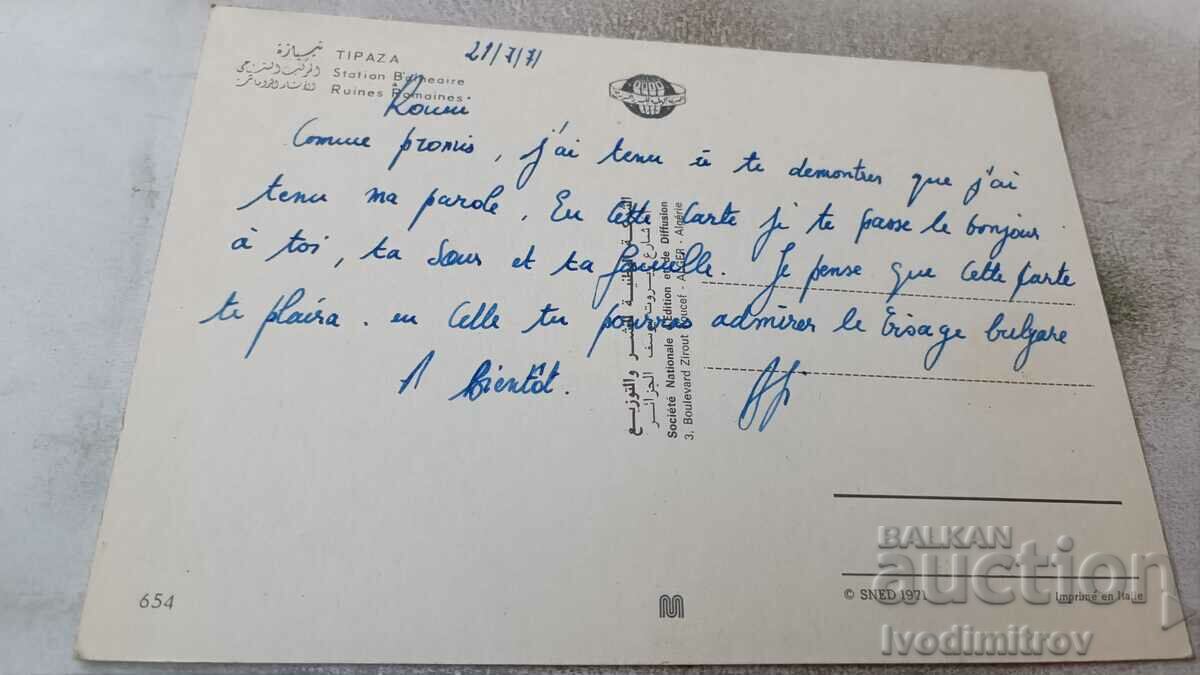 تيبازة TIPAZA 21/7/71
Station Balneaire
Ruines Romaines
Comme promis, j'ai tenu à te demontrer que j'ai
tenu ma parole. En Cette Carte je te passe le bonjour
à toi, ta Sœur et ta famille. Je pense que Cette Carte
te plaira. en Celle tu pourras admirer le visage bulgare
A bientôt.
الشركة الوطنية للنشر والتوزيع
Société Nationale d'Edition et de Diffusion
3, Boulevard Zirout Youcef - ALGER - Algérie
654
© SNED 1971 Imprimé en Italie
BALKAN
auction
Ivodimitrov